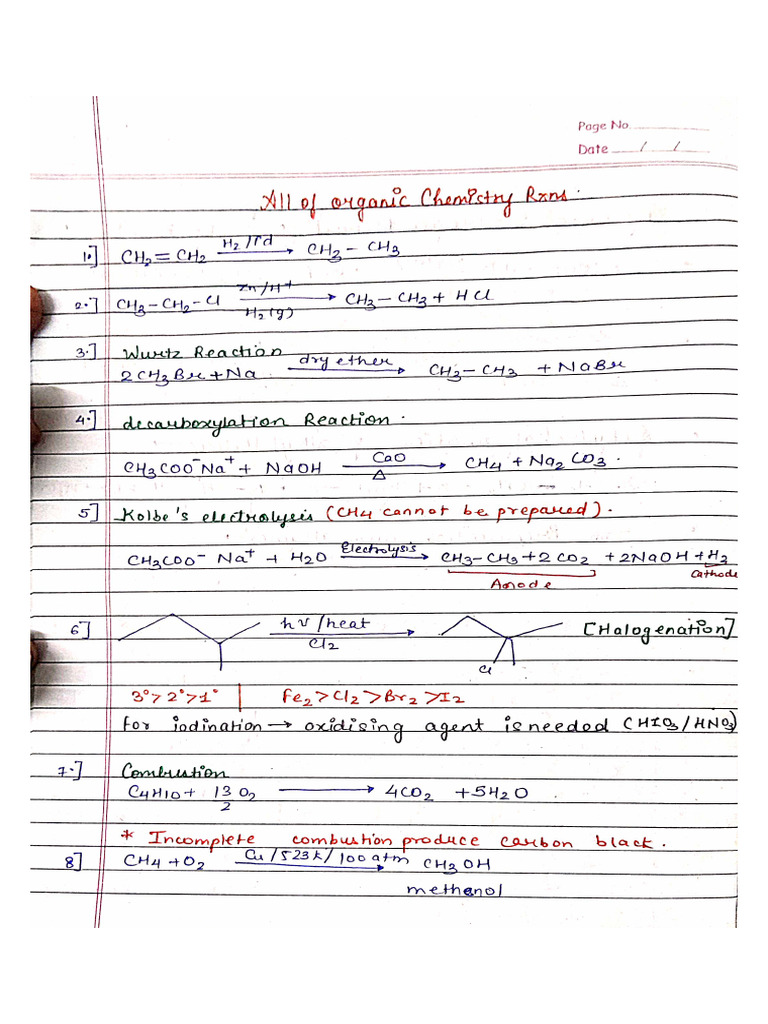 Page No.
Date / /
All of organic Chemistry Rxns.
1.] CH2=CH2 H2/Pd → CH3-CH3
2.] CH3-CH2-Cl Zn/H+ → CH3-CH3 + HCl
H2(g)
3.] Wurtz Reaction
2CH3Br+Na dry ether → CH3-CH3 + NaBr
4.] decarboxylation Reaction.
CH3COO-Na+ + NaOH CaO → CH4 + Na2CO3.
Δ
5] Kolbe's electrolysis (CH4 cannot be prepared).
CH3COO- Na+ + H2O Electrolysis → CH3-CH3+2CO2 +2NaOH+H2
Anode Cathode
6] hν/heat → [Halogenation]
Cl2
Cl
3°>2°>1° | Fe2>Cl2>Br2>I2
for iodination → oxidising agent is needed (HIO3/HNO3)
7.] Combustion
C4H10+ 13/2 O2 → 4CO2 +5H2O
* Incomplete combustion produce carbon black.
8] CH4+O2 Cu/523K/100atm → CH3OH
methanol